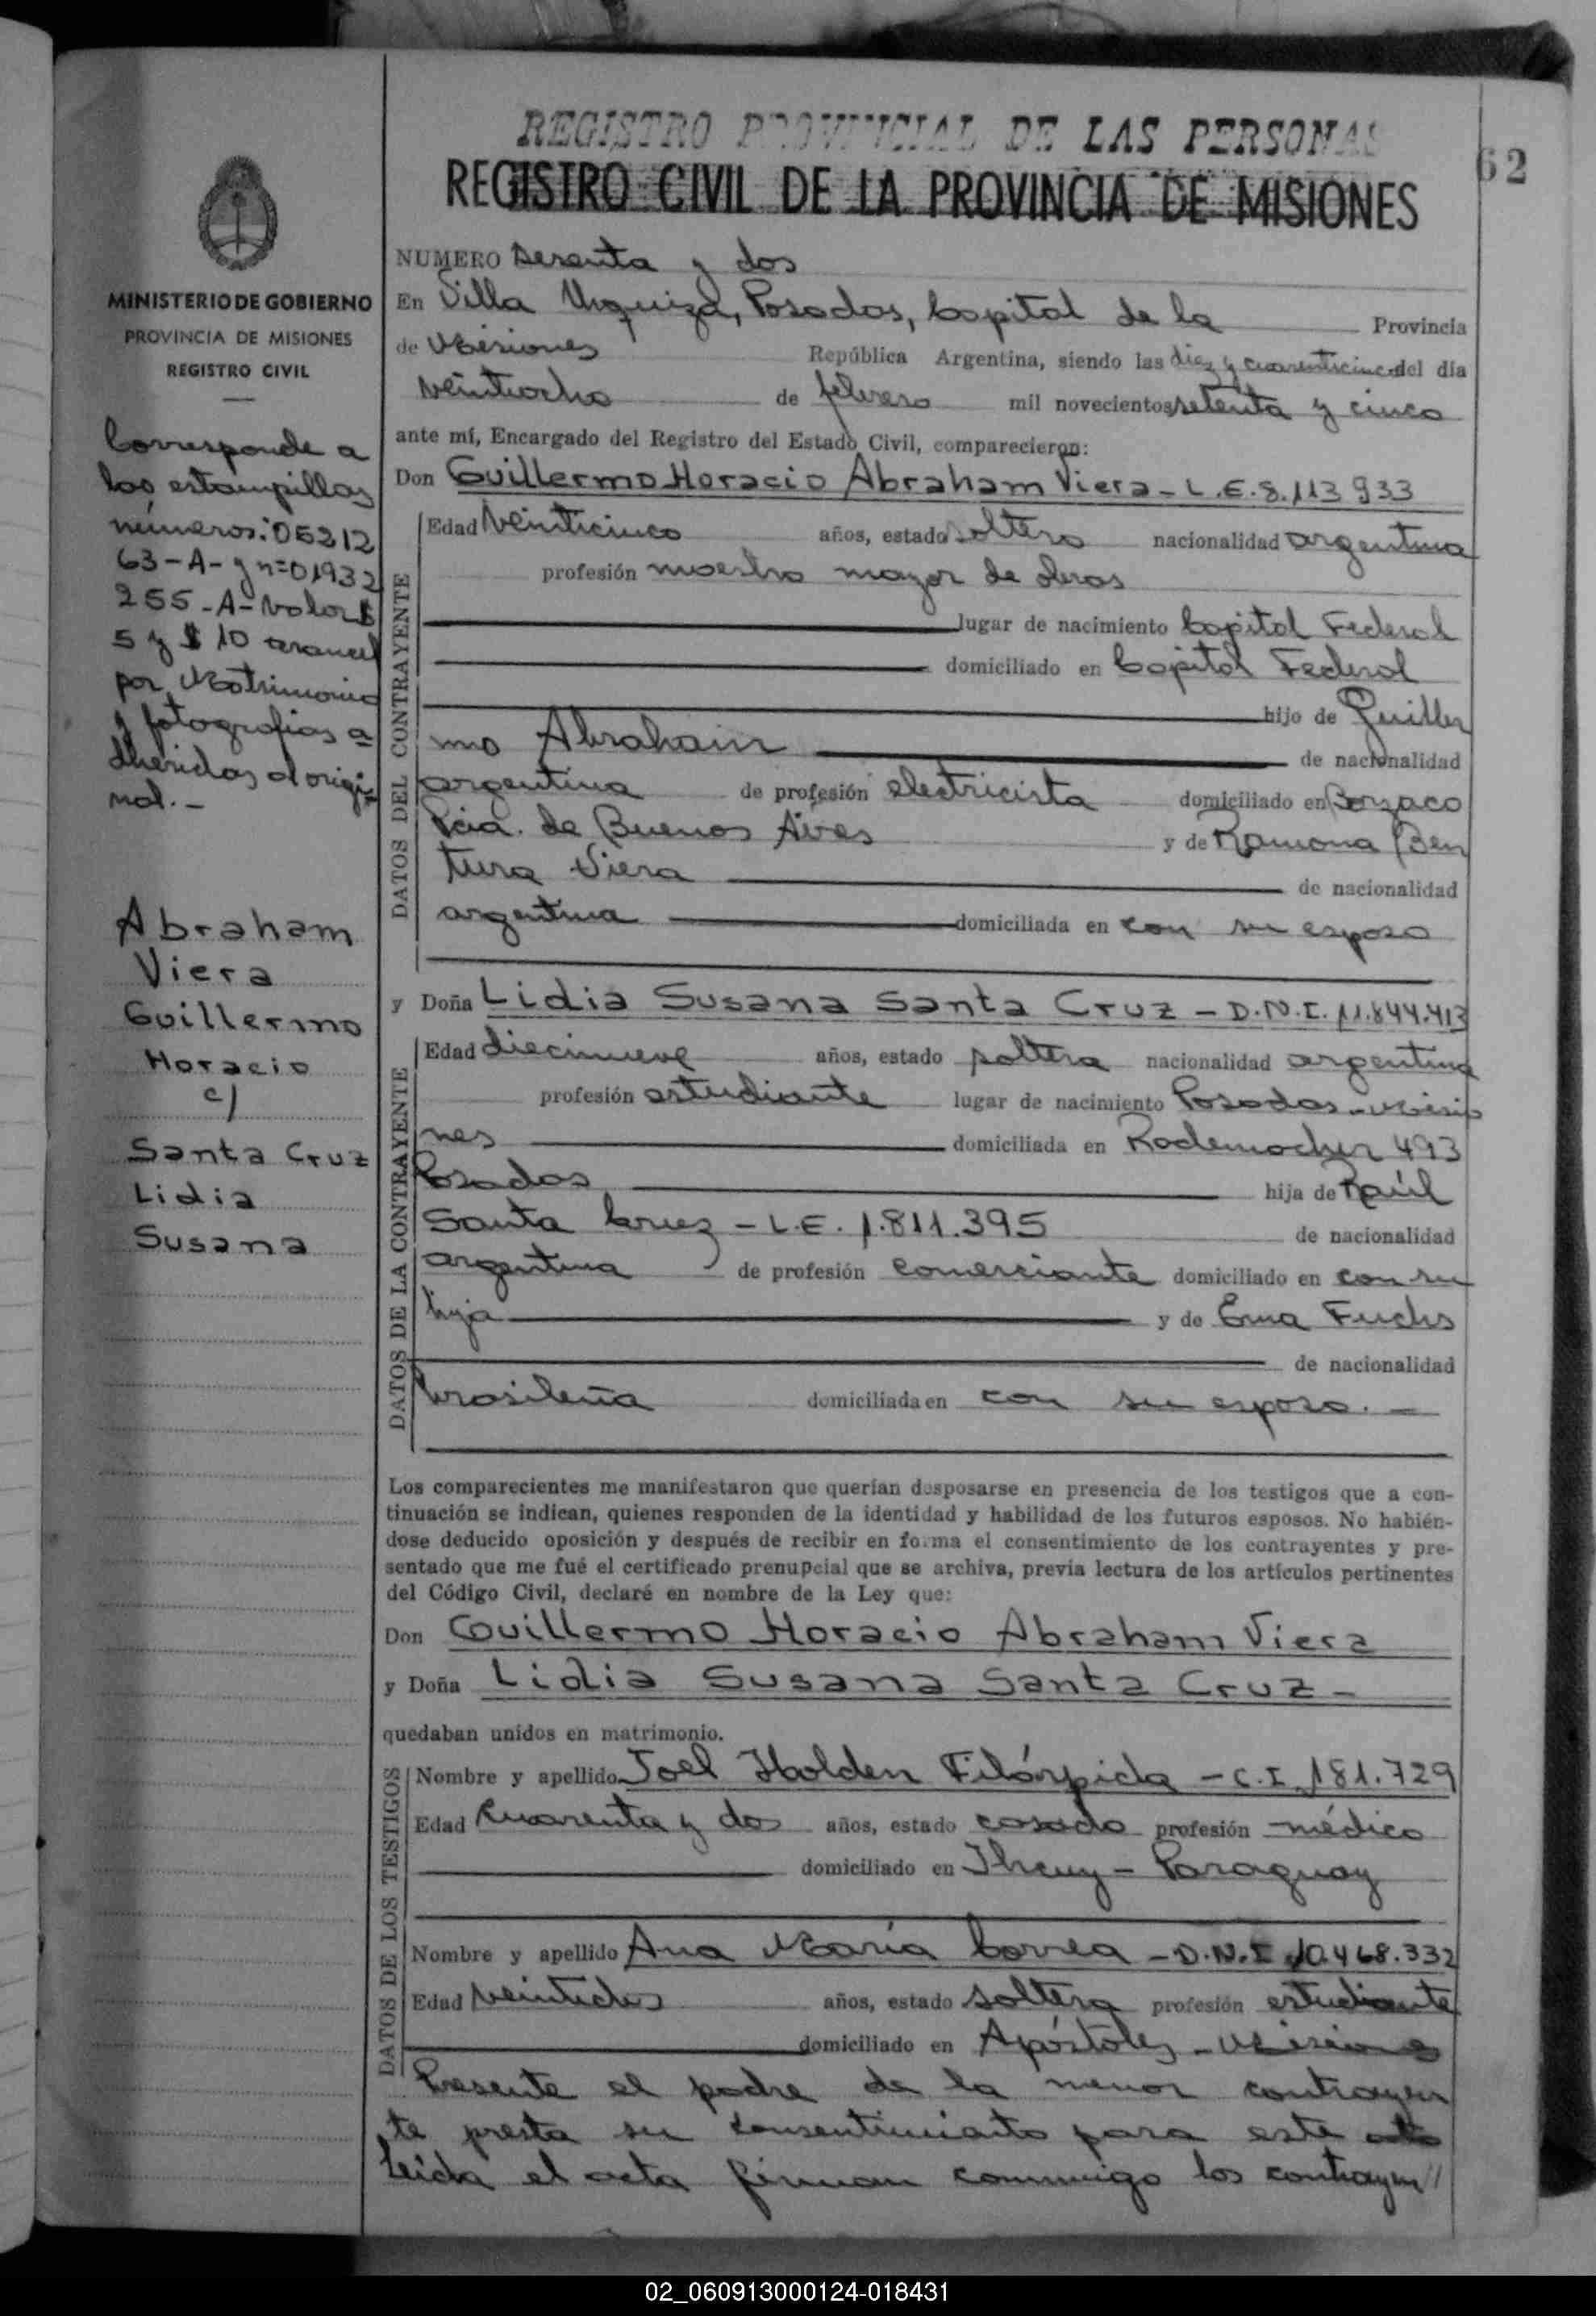 REGISTRO PROVINCIAL DE LAS PERSONAS
62
REGISTRO CIVIL DE LA PROVINCIA DE MISIONES
MINISTERIO DE GOBIERNO
PROVINCIA DE MISIONES
REGISTRO CIVIL
Corresponde a
las estampillas
números: 05212
63-A- y nº 01932
255-A- Valor $
5 y $ 10 arancel
por Matrimonio
y fotografías a
dheridas al origi
nal.-
Abraham
Viera
Guillermo
Horacio
c/
Santa Cruz
Lidia
Susana
NUMERO sesenta y dos
En Villa Urquiza, Posadas, Capital de la Provincia
de Misiones República Argentina, siendo las diez y cuarenticinco del día
veintiocho de febrero mil novecientos setenta y cinco
ante mí, Encargado del Registro del Estado Civil, comparecieron:
Don Guillermo Horacio Abraham Viera - L.E. 8.113933
DATOS DEL CONTRAYENTE
Edad veinticinco años, estado soltero nacionalidad argentina
profesión maestro mayor de obras
lugar de nacimiento Capital Federal
domiciliado en Capital Federal
hijo de Guiller
mo Abraham de nacionalidad
argentina de profesión electricista domiciliado en Borzaco
Pcia. de Buenos Aires y de Ramona Ben
tura Viera de nacionalidad
argentina domiciliada en con su esposo
y Doña Lidia Susana Santa Cruz - D.N.I. 11.844.413
DATOS DE LA CONTRAYENTE
Edad diecinueve años, estado soltera nacionalidad argentina
profesión estudiante lugar de nacimiento Posadas - Misio
nes domiciliada en Rademacher 493
Posadas hija de Raúl
Santa Cruz - L.E. 1.811.395 de nacionalidad
argentina de profesión comerciante domiciliado en con su
hija y de Erna Fuchs
de nacionalidad
brasileña domiciliada en con su esposo. -
Los comparecientes me manifestaron que querían desposarse en presencia de los testigos que a con-
tinuación se indican, quienes responden de la identidad y habilidad de los futuros esposos. No habién-
dose deducido oposición y después de recibir en forma el consentimiento de los contrayentes y pre-
sentado que me fué el certificado prenupcial que se archiva, previa lectura de los artículos pertinentes
del Código Civil, declaré en nombre de la Ley que:
Don Guillermo Horacio Abraham Viera
y Doña Lidia Susana Santa Cruz -
quedaban unidos en matrimonio.
DATOS DE LOS TESTIGOS
Nombre y apellido Joel Holden Filártiga - C.I. 181.729
Edad cuarenta y dos años, estado casado profesión médico
domiciliado en Ibcuy - Paraguay
Nombre y apellido Ana María Correa - D.N.I. 10.468.332
Edad veintidos años, estado soltera profesión estudiante
domiciliado en Apóstoles - Misiones
Presente el padre de la menor contrayen
te presta su consentimiento para este acto
leída el acta firman conmigo los contrayen//
02_060913000124-018431